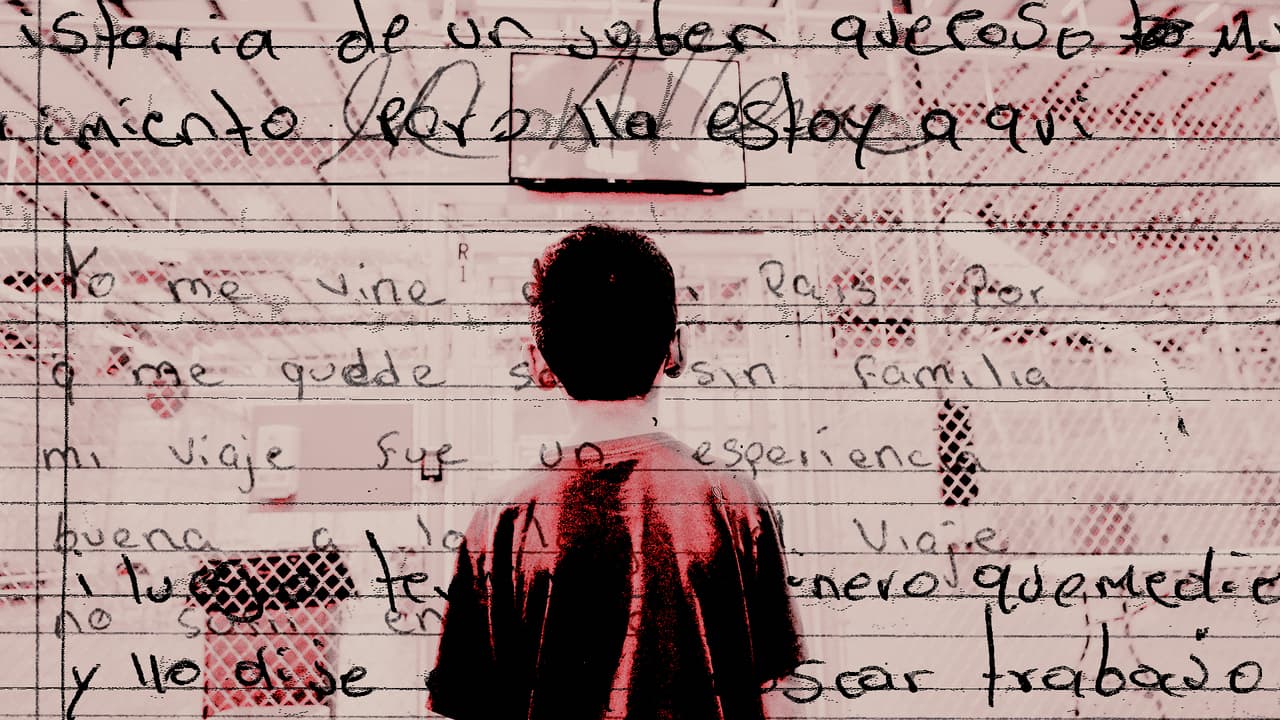 istoria de un joben queroso
imiento pero lla estoy a qui
Yo me vine Pais Por
q me quedde sin familia
mi viaje fue un esperiencia
buena a lo Viaje
i luego te nero quemedie
no en
y llo dije scar trabajo